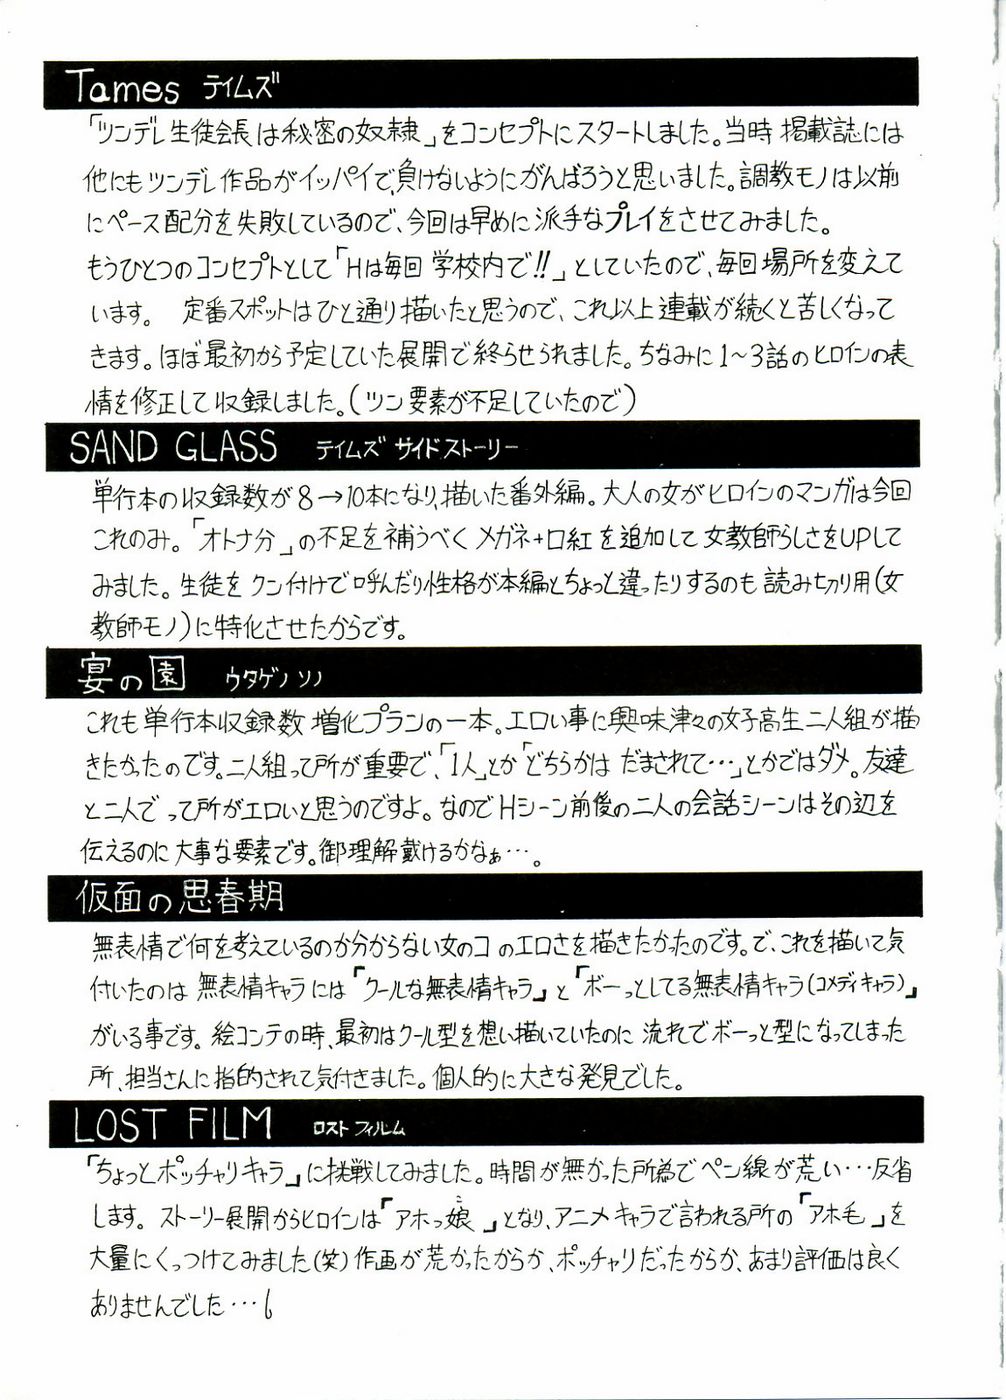 Tames テイムズ
「ツンデレ生徒会長は秘密の奴隷」をコンセプトにスタートしました。当時 掲載誌には
他にもツンデレ作品がイッパイで、負けないようにがんばろうと思いました。調教モノは以前
にペース配分を失敗しているので、今回は早めに派手なプレイをさせてみました。
もうひとつのコンセプトとして「Hは毎回 学校内で!!」としていたので、毎回場所を変えて
います。 定番スポットはひと通り描いたと思うので、これ以上連載が続くと苦しくなって
きます。ほぼ最初から予定していた展開で終らせられました。ちなみに1～3話のヒロインの表
情を修正して収録しました。(ツン要素が不足していたので)
SAND GLASS テイムズ サイドストーリー
単行本の収録数が8→10本になり、描いた番外編。大人の女がヒロインのマンガは今回
これのみ。「オトナ分」の不足を補うべくメガネ+口紅を追加して女教師らしさをUPして
みました。生徒をクン付けで呼んだり性格が本編とちょっと違ったりするのも読み切り用(女
教師モノ)に特化させたからです。
宴の園 ウタゲノソノ
これも単行本収録数増化プランの一本。エロい事に興味津々の女子高生二人組が描
きたかったのです。二人組って所が重要で、「1人」とか「どちらかは だまされて…」とかではダメ。友達
と二人でって所がエロいと思うのですよ。なのでHシーン前後の二人の会話シーンはその辺を
伝えるのに大事な要素です。御理解戴けるかなぁ…。
仮面の思春期
無表情で何を考えているのか分からない女のコのエロさを描きたかったのです。で、これを描いて気
付いたのは無表情キャラには「クールな無表情キャラ」と「ボーっとしてる無表情キャラ(コメディキャラ)」
がいる事です。絵コンテの時、最初はクール型を想い描いていたのに流れでボーっと型になってしまった
所、担当さんに指的されて気付きました。個人的に大きな発見でした。
LOST FILM ロストフィルム
「ちょっとポッチャリキャラ」に挑戦してみました。時間が無かった所為でペン線が荒い…反省
します。ストーリー展開からヒロインは「アホっ娘」となり、アニメキャラで言われる所の「アホ毛」を
大量にくっつけてみました(笑)作画が荒かったからか、ポッチャリだったからか、あまり評価は良く
ありませんでした…